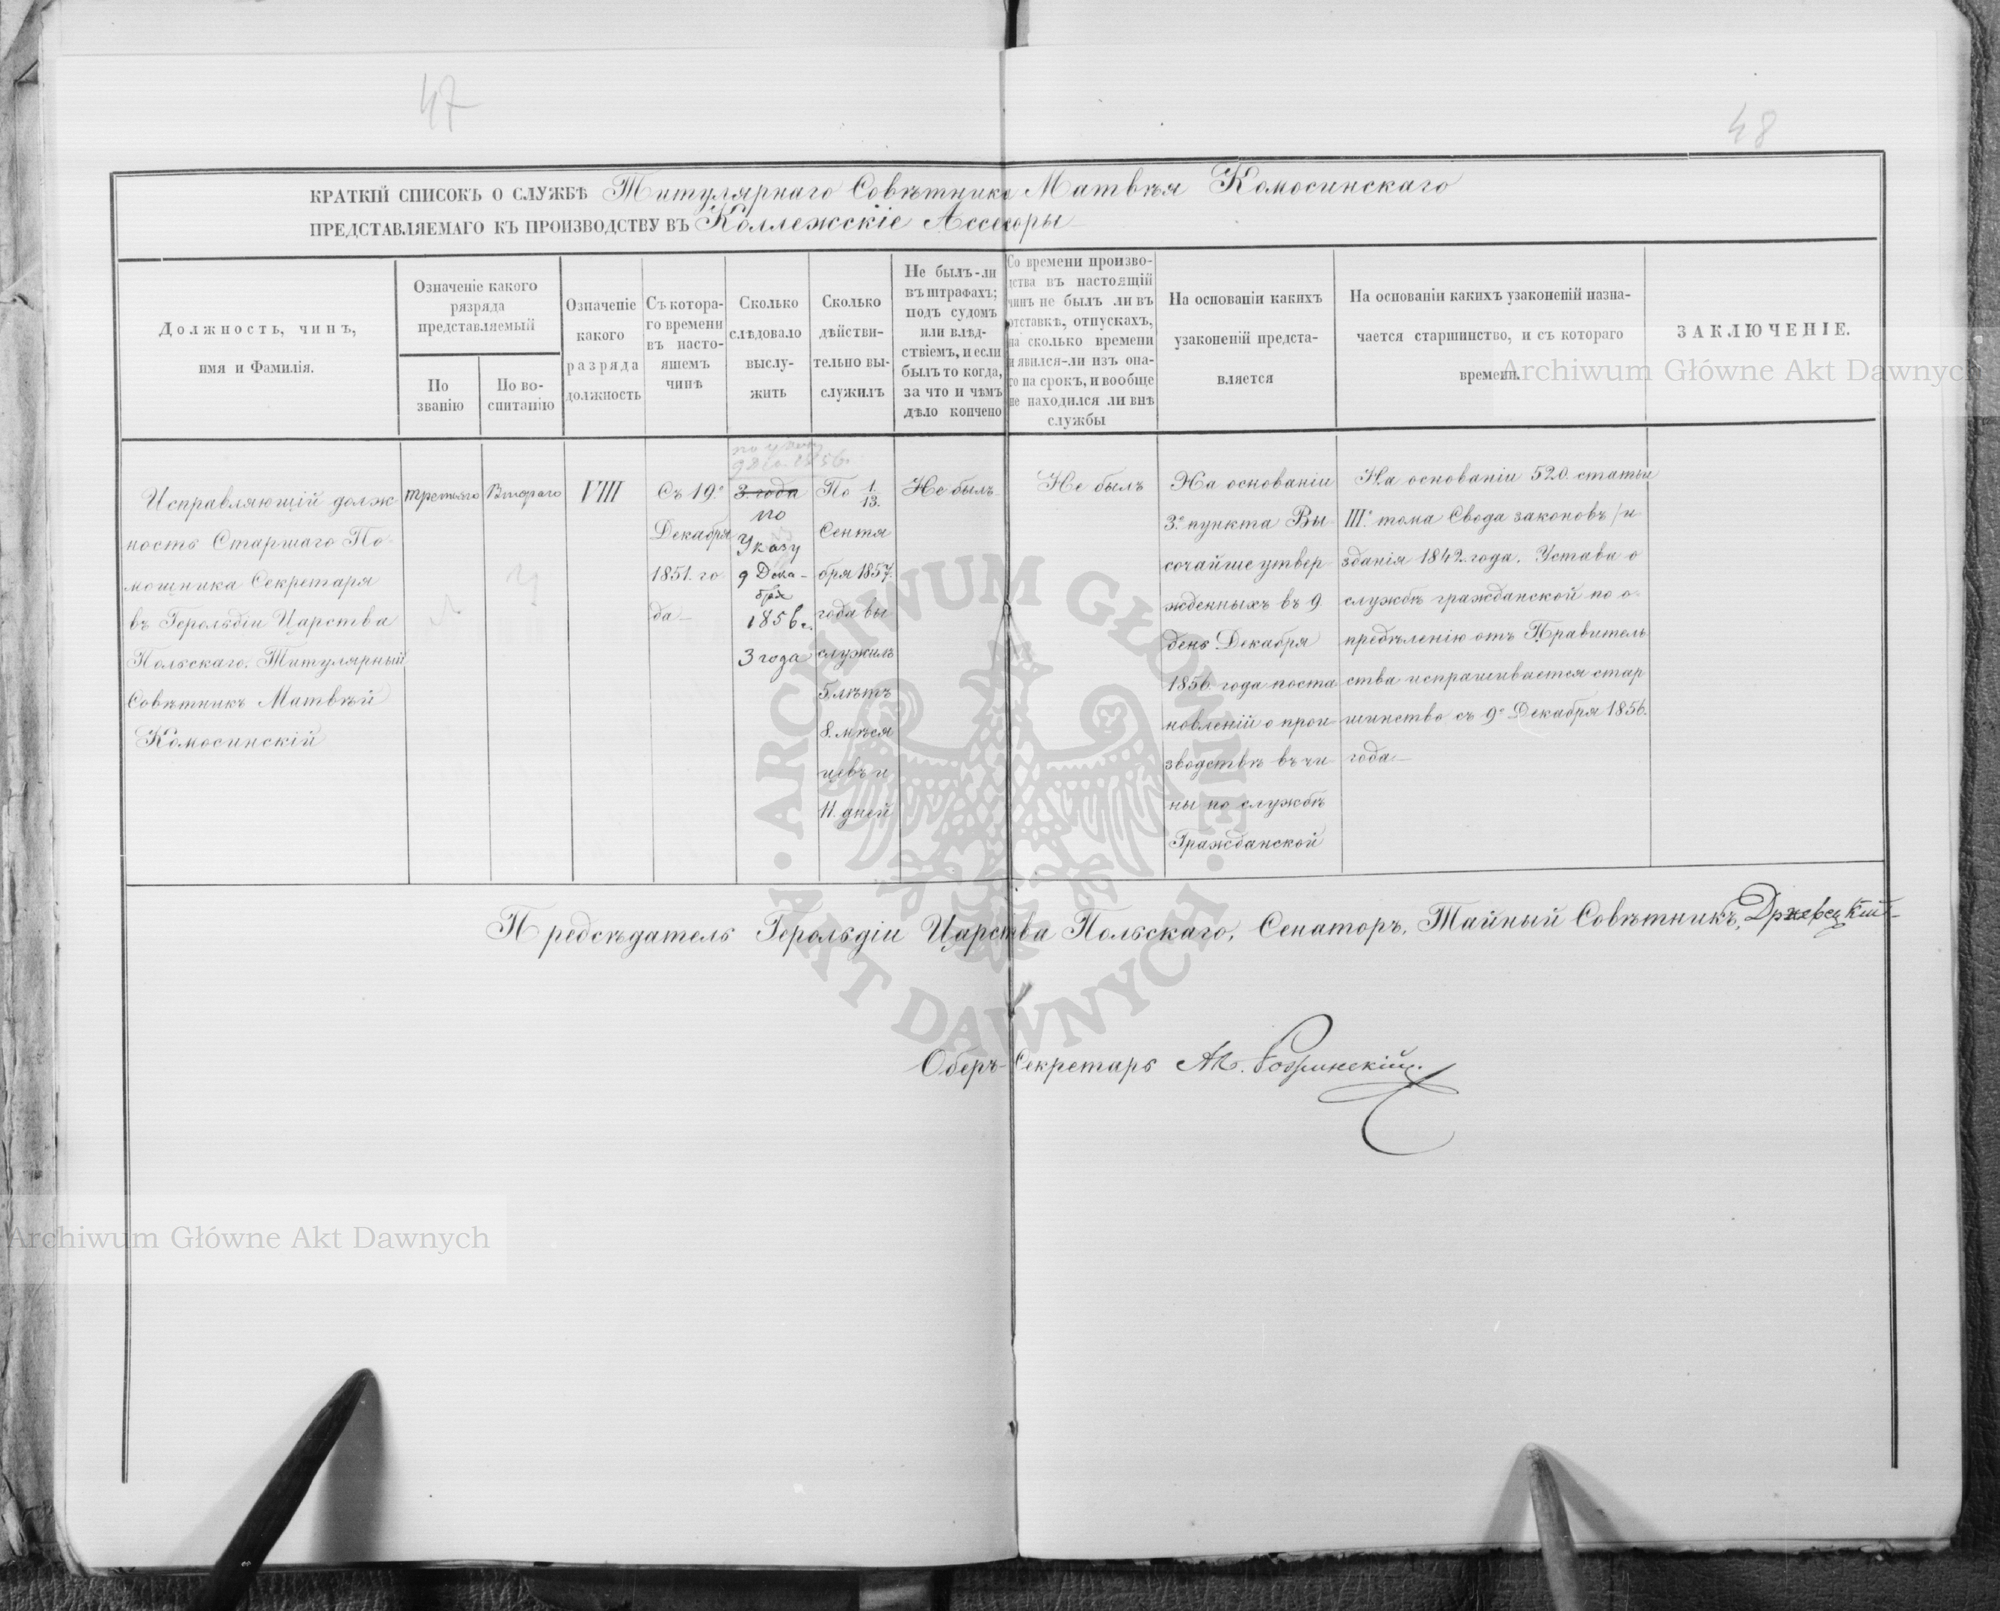 47
48
КРАТКІЙ СПИСОКЪ О СЛУЖБѢ Титулярнаго Совѣтника Матвѣя Комосинскаго
ПРЕДСТАВЛЯЕМАГО КЪ ПРОИЗВОДСТВУ ВЪ Коллежскіе Ассесоры
Должность, чинъ,
имя и Фамилія.
Означеніе какого
рязряда
представляемый
По
званію
По во-
спитанію
Означеніе
какого
разряда
должность
Съ котора-
го времени
въ насто-
яшемъ
чинѣ
Сколько
слѣдовало
выслу-
жить
Сколько
дѣйстви-
тельно вы-
служилъ
Не былъ-ли
въ штрафахъ;
подъ судомъ
или влѣд-
ствіемъ, и если
былъ то когда,
за что и чѣмъ
дѣло кончено
Со времени произво-
дства въ настоящій
чинъ не былъ ли въ
отставкѣ, отпускахъ,
на сколько времени
и явился-ли изъ она-
го на срокъ, и вообще
не находился ли внѣ
службы
На основаніи какихъ
узаконеній предста-
вляется
На основаніи какихъ узаконеній назна-
чается старшинство, и съ котораго
времени.
ЗАКЛЮЧЕНІЕ.
Исправляющій долж
ность Старшаго По-
мощника Секретаря
въ Герольдіи Царства
Польскаго. Титулярный
Совѣтникъ Матвѣй
Комосинскій
третьяго
Втораго
VIII
Съ 19го
Декабря
1851. го
да
по указу
9 Дек. 1856.
3. года
по
Указу
9 Дека-
бря
1856 г.
3 года
По 1/13.
Сентя
бря 1857.
года вы
служилъ
5. лѣтъ
8. мѣся
цевъ и
11. дней
Не былъ
Не былъ
На основаніи
3го пункта Вы-
сочайше утвер-
жденныхъ въ 9.
день Декабря
1856. года поста
новленій о прои-
зводствѣ въ чи-
ны по службѣ
Гражданской
На основаніи 520. статьи
IIIго тома Свода законовъ /и-
зданія 1842. года. Устава о
службѣ гражданской по о-
предѣленію отъ Правитель
ства испрашивается стар
шинство съ 9го Декабря 1856.
года
Предсѣдатель Герольдіи Царства Польскаго, Сенаторъ, Тайный Совѣтникъ,
Оберъ-Секретарь
Archiwum Główne Akt Dawnych
Archiwum Główne Akt Dawnych
ARCHIWUM GŁÓWNE · AKT DAWNYCH ·